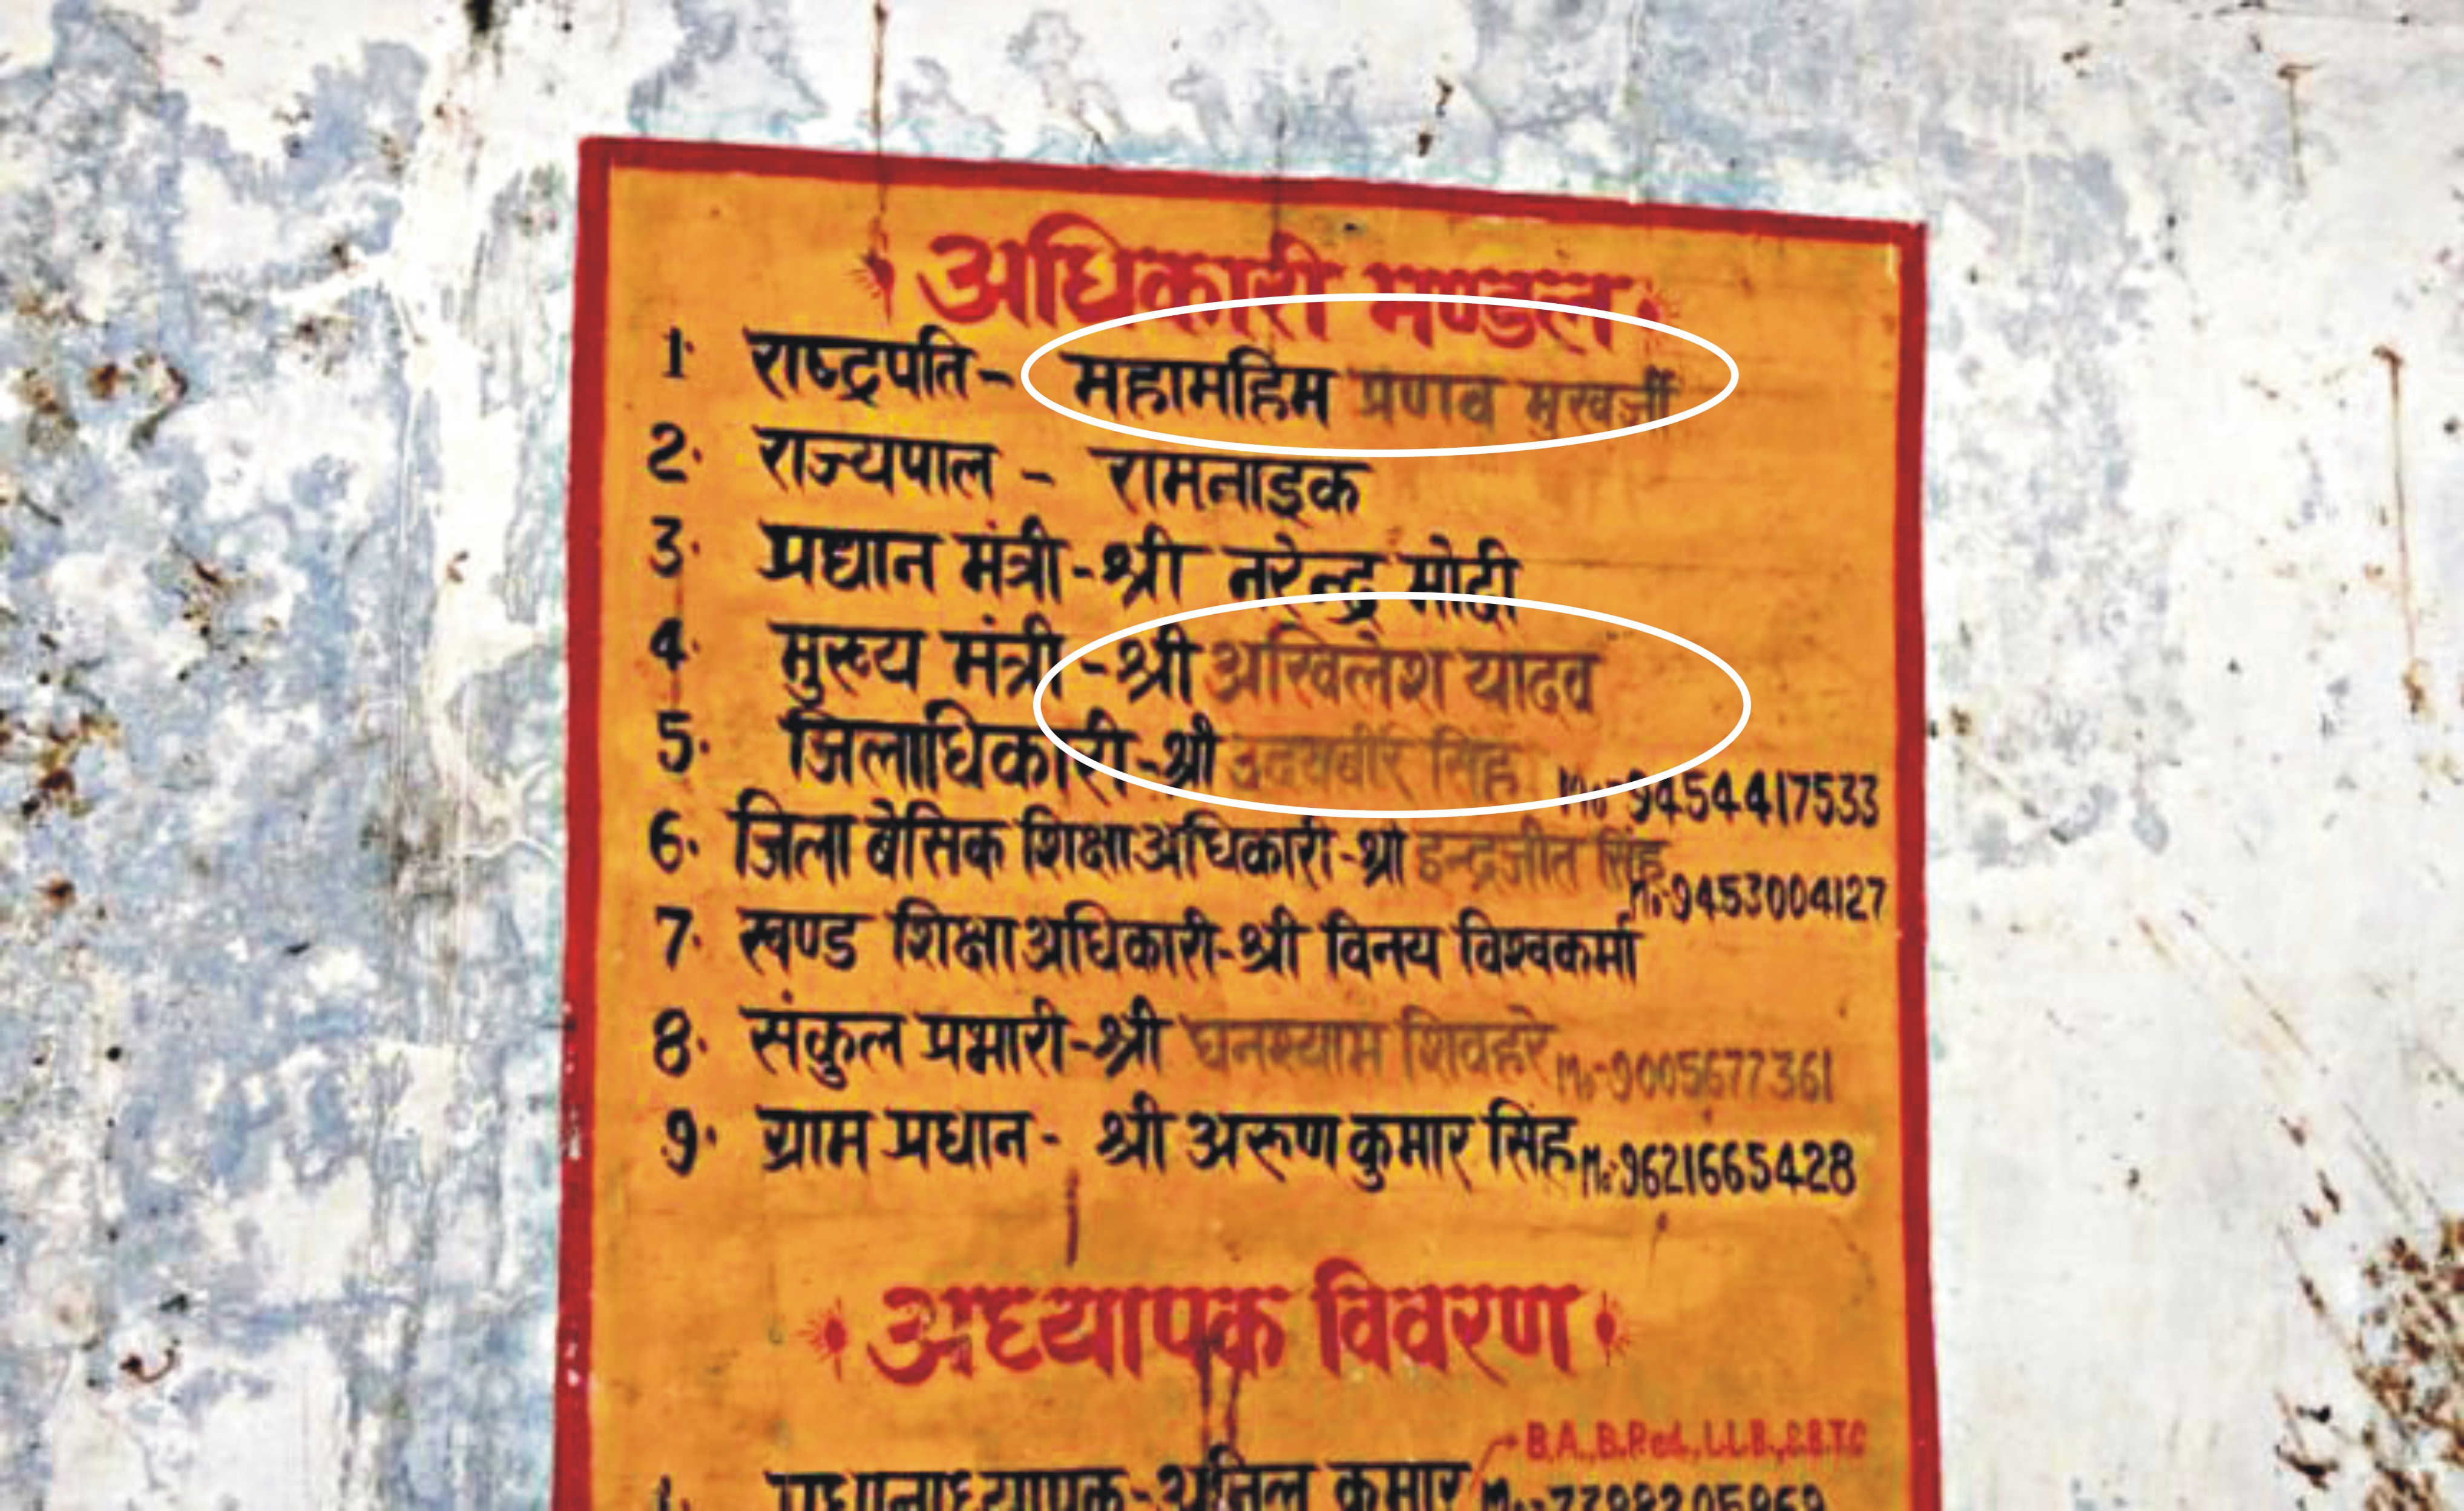 अधिकारी मण्डल
1. राष्ट्रपति- महामहिम प्रणव मुखर्जी
2. राज्यपाल - रामनाइक
3. प्रधान मंत्री-श्री नरेन्द्र मोदी
4. मुख्य मंत्री-श्री अखिलेश यादव
5. जिलाधिकारी-श्री उदयबीर सिंह Mo-9454417533
6. जिला बेसिक शिक्षा अधिकारी-श्री इन्द्रजीत सिंह M:-9453004127
7. खण्ड शिक्षा अधिकारी-श्री विनय विश्वकर्मा
8. संकुल प्रभारी-श्री घनश्याम शिवहरे Mo-9005677361
9. ग्राम प्रधान- श्री अरूण कुमार सिंह M:-9621665428
अध्यापक विवरण
B.A.,B.P.ed.,L.L.B.,
1. प्रधानाध्यापक-अनिल कुमार